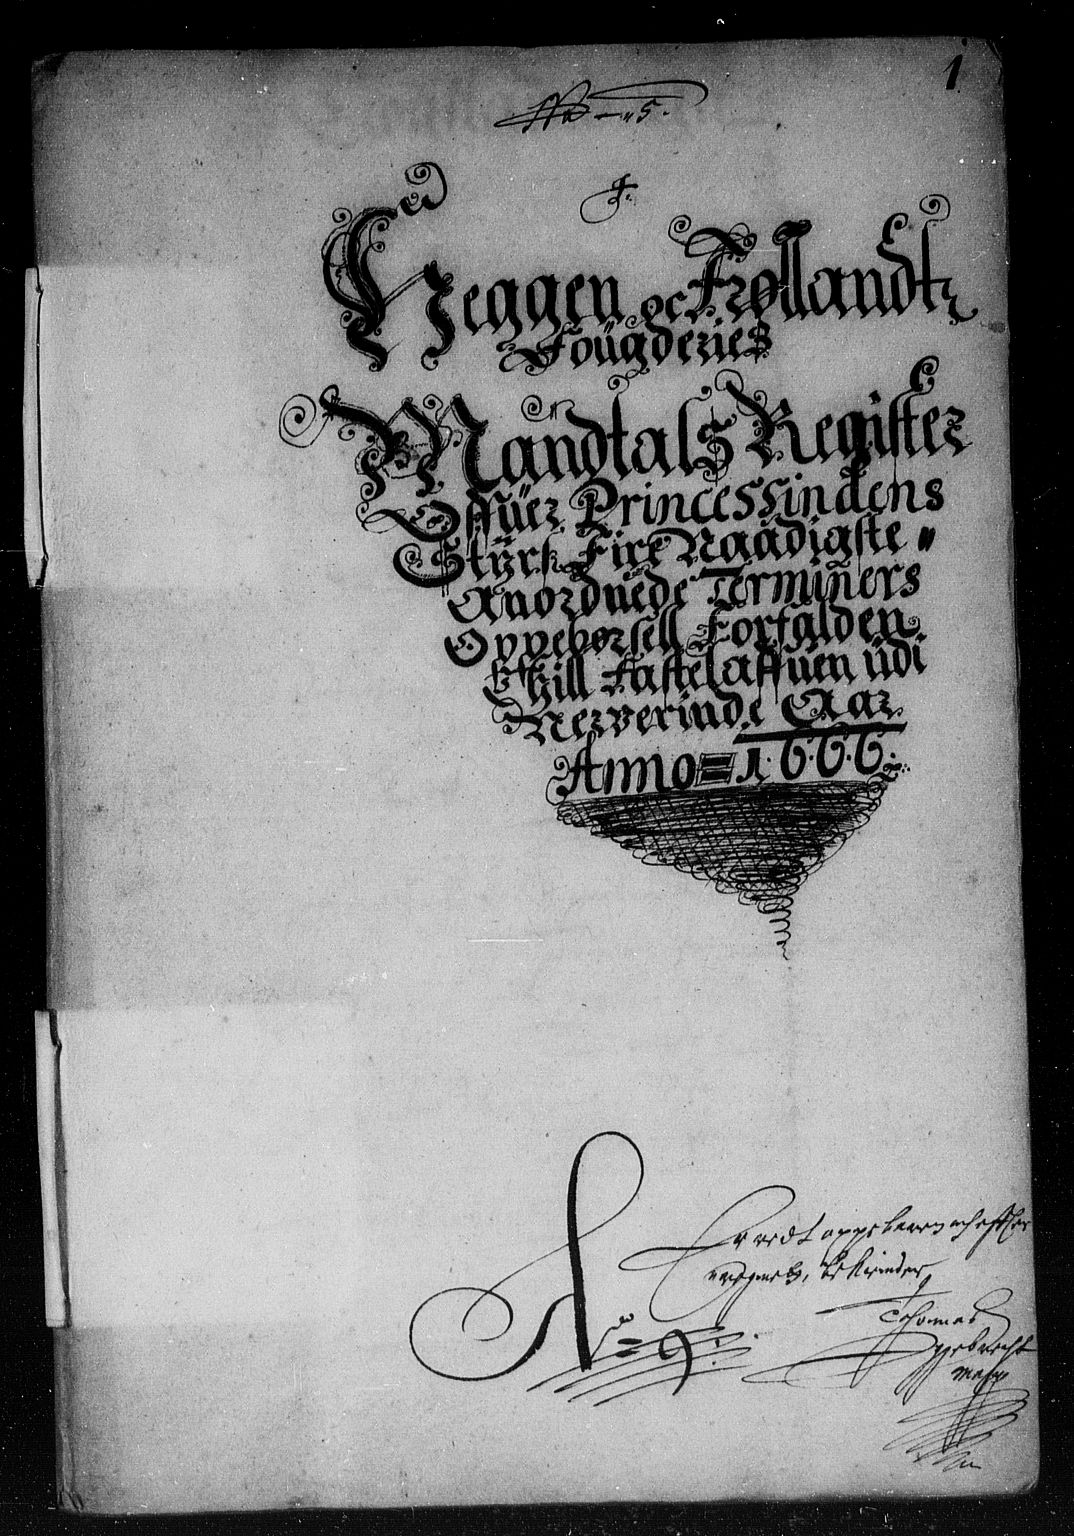 1
No 5.
Heggen oc Frøllandtz
Foügderies
Mandtals Register
Offüer Princessindens
Stÿrs Fire Naadigste "
Anordnede Terminers
Oppebørsell Forfalden
Thill Fastelaffuen üdi
Nerverinde Aar
Anno = 1.6.6.6.
No = 9:
bekiender
Thomas